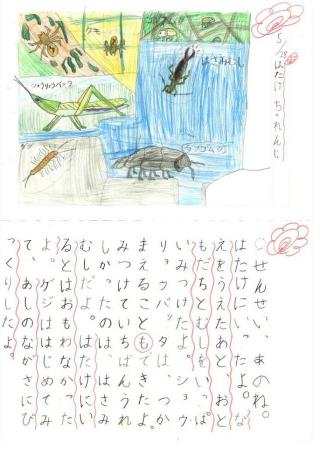 5/28 はたけちゃれんじ
はさみむし
クモ
ショウリョウバッタ
ゲジ
せんせい、あのね。
はたけにいって、な
えをうえたあと、おと
もだちとむしをいっぱ
いみつけたよ。ショウ
リョウバッタは、つか
まえることもできたよ。
みつけていちばんうれ
しかったのは、はさみ
むしだよ。はたけにい
るとはおもわなかった
よ。ゲジははじめてみ
て、あしのながさにび
っくりしたよ。